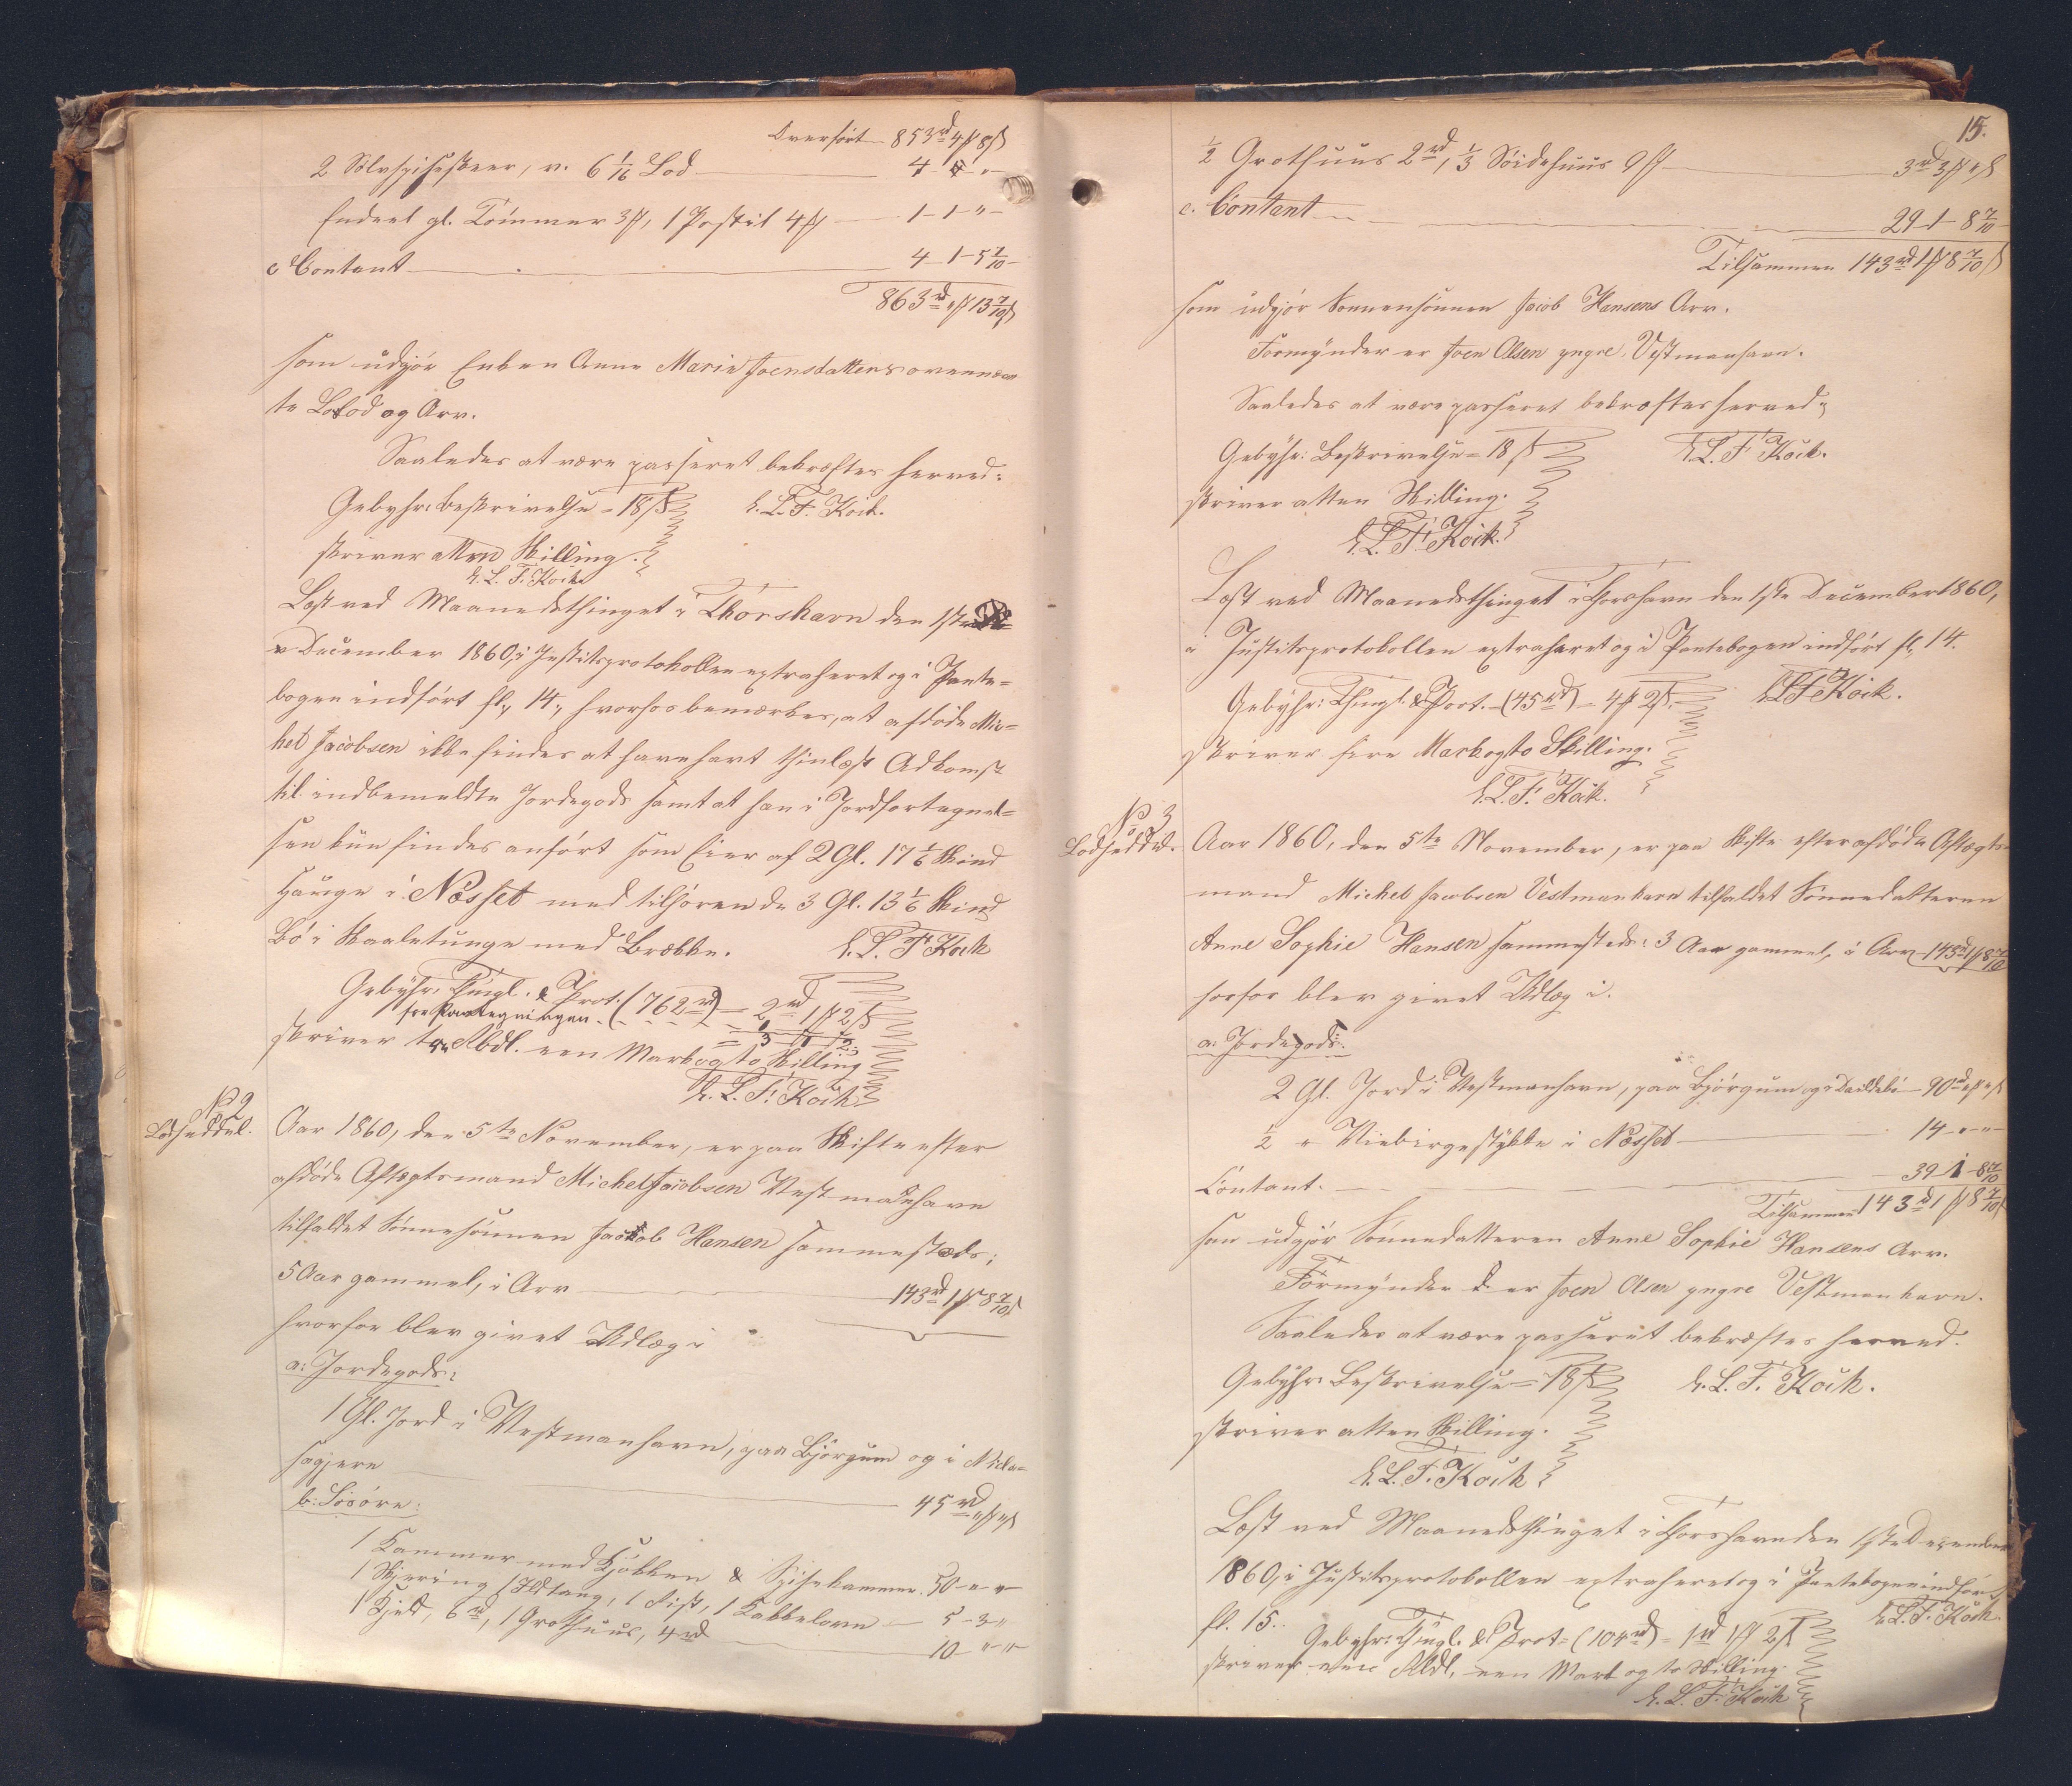 Overført 853rd 4ß 8ß
2 Sølvspiseskeer, v. 6 1/16 Lod 4 - 4 - "
Endeel gl. Tömmer 3ß, 1 Postil 4ß 1 - 1 - "
c Contant 4 - 1 - 5 7/10
863rd "ß 13 7/10ß
som udgjör Enken Anne Marie Joensdatters ovennævn
te Lod og Arv.
Saaledes at være passeret bekræftes herved:
Gebyhr: Beskrivelse = 18ß H. L. F. Kock.
skriver atten Skilling.
H. L. F. Kock
Læst ved Maanedsthinget i Thorshavn den 1ste
December 1860, i Justitsprotokollen extraheret og i Pante=
bogen indfört fl. 14, hvorhos bemærkes, at afdöde Mic=
hel Jacobsen ikke findes at have havt thinlæst Adkomst
til indbemeldte Jordegods samt at han i Jordfortegnel=
sen kun findes anfört som Eier af 2 Gl. 17 1/6 Skind
Hauge i Næsset med tilhörende 3 Gl. 13 1/6 Skind
Bö i Skaaletunge med Brække. H. L. F. Kock
Gebyhr: Thingl. & Prot. (762rd) = 2rd 1ß 2ß
for Paategningen
skriver tre Rbdl. een Mark og to Skilling
H. L. F. Kock
No 2
Lodseddel.
Aar 1860, den 5te November, er paa Skifte efter
afdöde Aftægtsmand Michel Jacobsen Vestmanhavn
tilfaldet Sönnesönnen Jacob Hansen sammesteds;
5 Aar gammel, i Arv 143rd 1ß 8 7/10ß
hvorfor blev givet Udlæg i
a: Jordegods:
1 Gl. Jord i Vestmanhavn, paa Björgum og i Nida=
hagjere 45rd "ß "ß
b: Lösöre:
1 Kammer med Kjökken & Spisekammer 50 - " "
1 Skjering, 1 Ildtang, 1 Rist, 1 Kakkelovn 5 - 3 - "
1 Hjeld, 6rd, 1 Grothuus, 4rd 10 " "
15.
1/2 Grothuus 2rd, 1/3 Söidehuus 9ß 3rd 3ß "ß
c. Contant 29 - 1 - 8 7/10
Tilsammen 143rd 1ß 8 7/10ß
som udgjör Sönnesönnen Jacob Hansens Arv.
Formynder er Joen Olsen yngre, Vestmanhavn.
Saaledes at være passeret bekræftes herved:
Gebyhr: Beskrivelse = 18ß H. L. F. Kock.
skriver atten Skilling.
H. L. F. Kock.
Læst ved Maanedsthinget i Thorshavn den 1ste December 1860,
i Justitsprotokollen extraheret og i Pantebogen indfört fl. 14.
Gebyhr: Thingl. & Prot. (45rd) = 4ß 2ß. H. L. F. Kock.
skriver fire Mark og to Skilling.
H. L. F. Kock.
No 3
Lodseddel.
Aar 1860, den 5te November, er paa Skifte efter afdöde Aftægts=
mand Michel Jacobsen Vestmanhavn tilfaldet Sönnedatteren
Anne Sophie Hansen sammesteds; 3 Aar gammel, i Arv 143rd 1ß 8 7/10
hvorfor blev givet Udlæg i.
a: Jordegods:
2 Gl. Jord i Vestmanhavn, paa Björgum og i Daildeli 90rd "ß "ß
1/2 " Viebirgestykke i Næsset 14 - " - "
Contant. 39 - 1 - 8 7/10
Tilsammen 143rd 1ß 8 7/10ß
som udgjör Sönnedatteren Anne Sophie Hansens Arv.
Formynder er Joen Olsen yngre Vestmanhavn.
Saaledes at være passeret bekræftes herved.
Gebyhr: Beskrivelse = 18ß H. L. F. Kock.
skriver atten Skilling.
H. L. F. Kock
Læst ved Maanedsthinget i Thorshavn den 1ste December
1860, i Justitsprotokollen extraheret og i Pantebogen indfört
fl. 15. H. L. F. Kock.
Gebyhr: Thingl. & Prot. (104rd) = 1rd 1ß 2ß
skriver een Rbdl. een Mark og to Skilling.
H. L. F. Kock